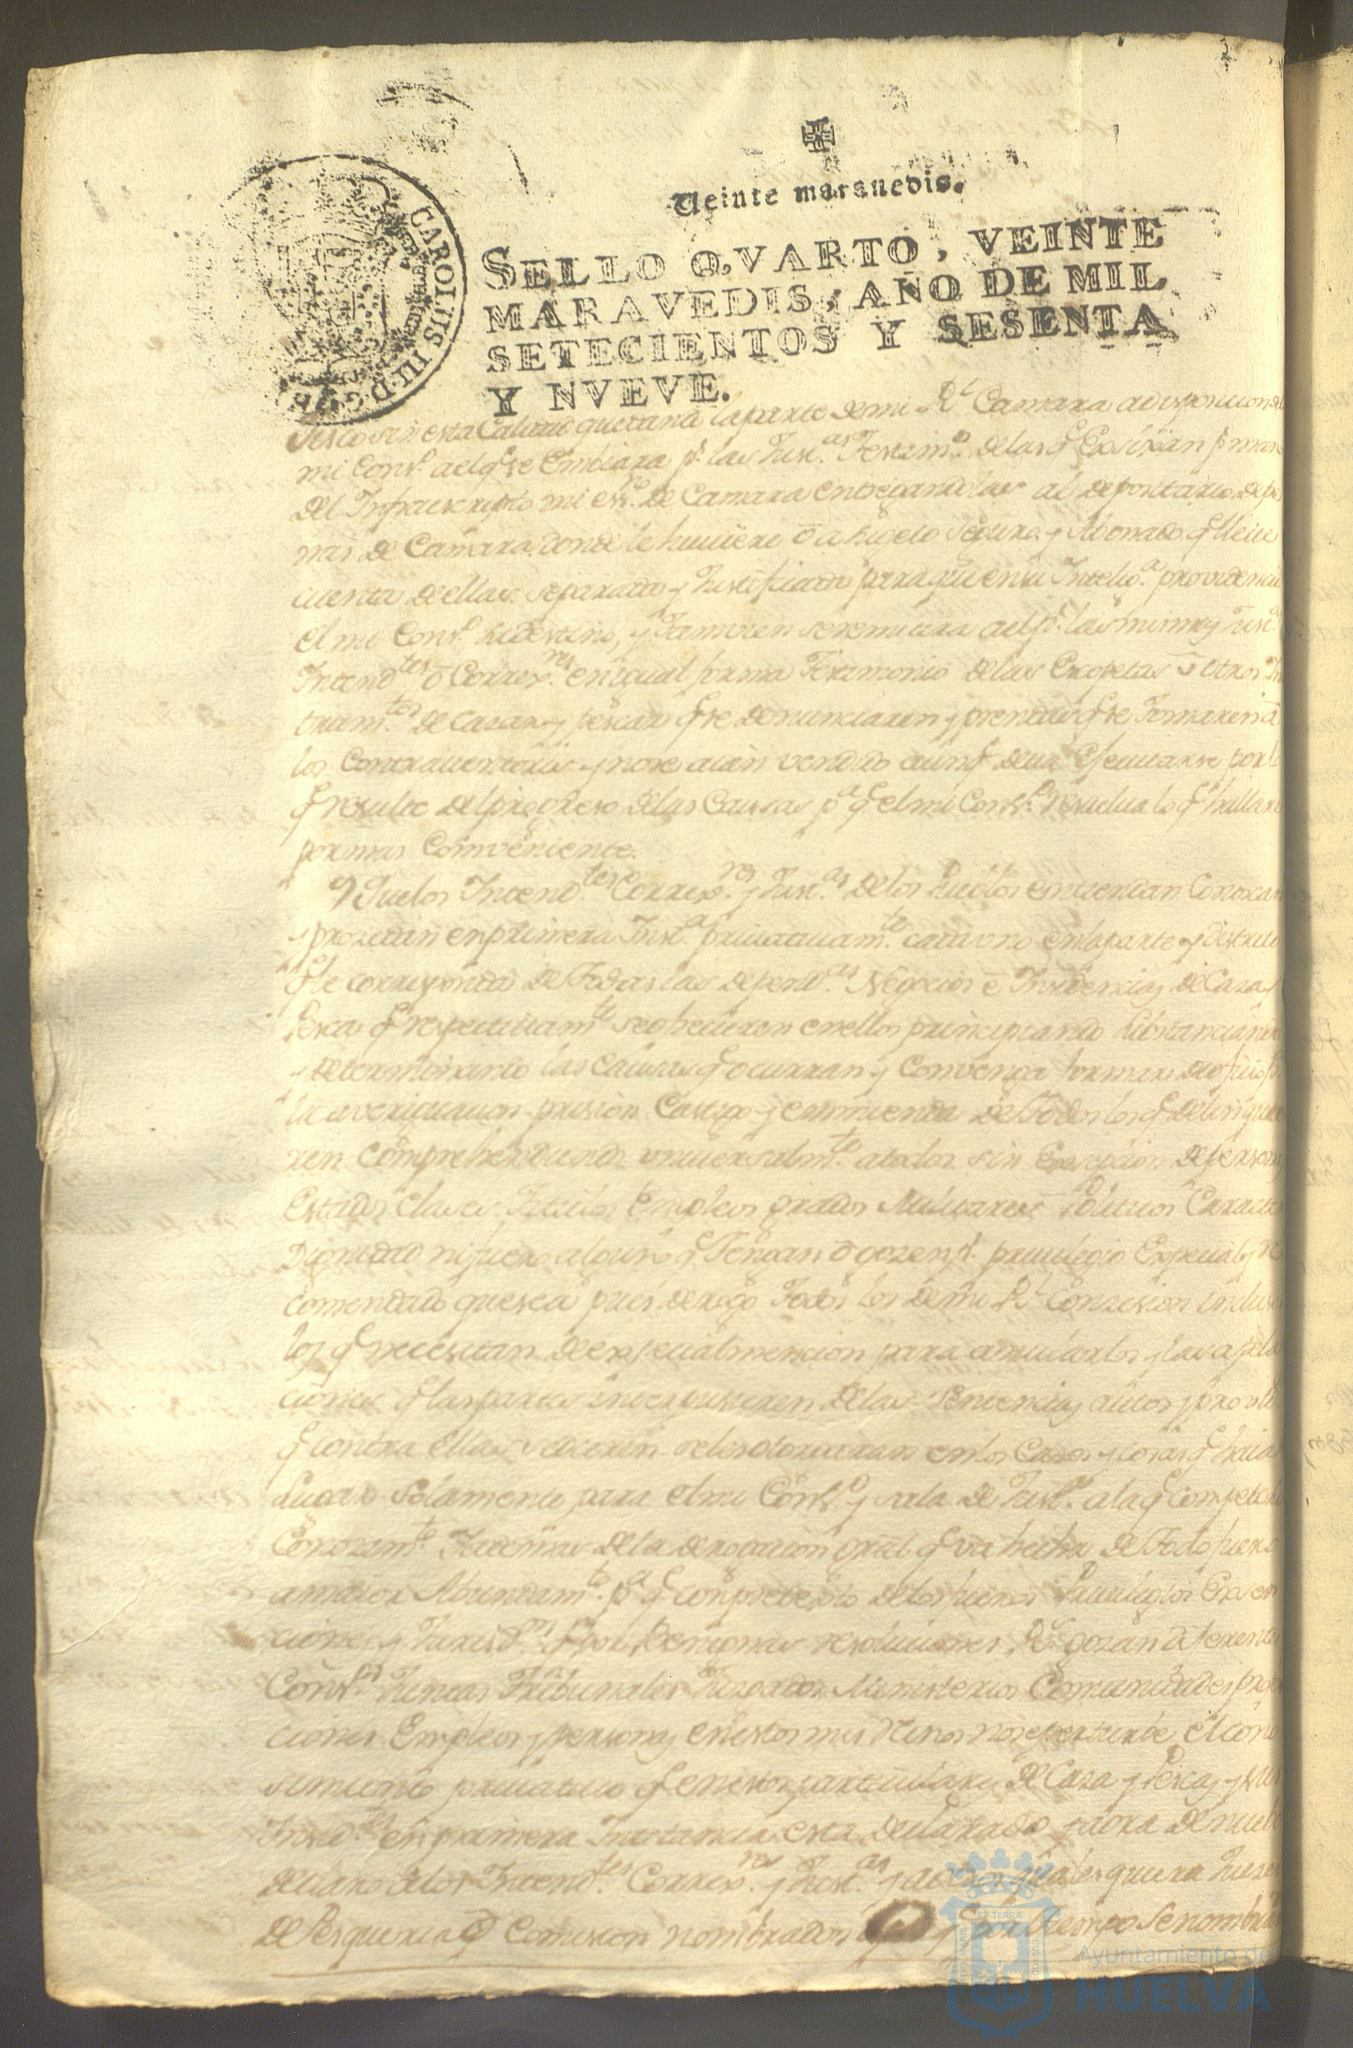 Veinte maravedis.
SELLO QVARTO, VEINTE
MARAVEDIS, AÑO DE MIL
SETECIENTOS Y SESENTA
Y NVEVE.
CAROLUS III D G
sin esta Calidad quedando la parte de mi Rl Camara a disposicion
mi Consº. al qe se Embiara pr. las Justas. Testimº. de las qe
del Infraescripto mi esno. de Camara entregandolas al depositario de pe
nas de Camara donde le huuiere ō a sugeto seguro y Abonado qe lleue
cuenta de ellas separada y Justificada para que en su Inteliga. providencie
el mi Consº. su destino, y tamvien se remitira al pr. las mismas Justas.
Intendtes. ō Correxres. en igual forma Testimonio de las Escopetas ū otros Ins
trumtos. de cazar y pescar qe se denunciaren y prendas qe se Tomaren ā
los Contrauentores y no se aian vendido aunqe deua Efecutarse por lo
qe resulte del progreso de las Caussas pa qe el mi Consº. resuelua lo qe hallare
por mas Conveniente.
9 Que los Intendtes. Correxres. y Justas. de los Pueblos entiendan Conozcan
y prozedan en primera Insta. priuatiuamte. cada uno en la parte y Distrito
qe le corresponda de Todas las dependas. Negocios ē Insidencias de Caza y
Pesca qe respectiuamte se ofrecieren en ellos principiando substanciando
y determinando las Causas qe ocurran y Convenga formar de oficio pa
la averiguacion prision Castigo y enmienda de Todos los qe delinquie
ren Comprehendiendo vniversalmte. a todos sin Excepcion de persona
Estados Clases Titulos Empleos grados Militares Politicos Caracter
Dignidad ni fuero alguno qe Tengan ō gozen pr. priuilegio Especial y re
comendado que sea pues derogo Todos los de mi Rl Conzesion inclusos
los qe necesitan de especial mencion para anularlos y las apela
ciones qe las partes interpusieren de las Sentencias autos y provids.
qe contra ellas se dieren se les otorgaran en los Casos y cosas qe haia
Lugar Solamente para el mi Consº. y sala de Justa. a la qe Compete su
Conozimto. Y ademas de la derogacion gral qe va hecha de Todo fuero
a maior Abundamto. pa qe con pretexto de los fueros Priuilegios Exsen
ciones y Jurisdnes. qe por resoluciones Rs. gozan diferentes
Consos. Juntas Tribunales Juzgados Ministerios Comunidades profe
ciones Empleos y personas en estos mis Reinos no se perturbe el cono
simiento priuatiuo qe en estos particulares de Caza y Pesca y sus
Insidas. en primera Instancia esta declarado y aora de nuebo
declaro a los Intendtes. Correxres. y Justas. y a otros quales quiera Jueses
de Pesqueria ō Comision nombrados y qe en lo tiempo se nombra
Ayuntamiento de
HUELVA